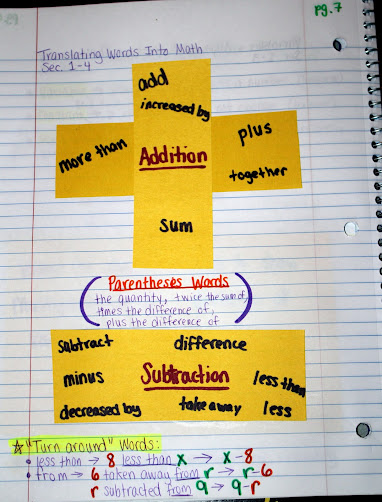 pg. 7
Translating Words Into Math
Sec. 1-4
add
increased by
more than
Addition
plus
together
sum
Parentheses Words
the quantity, twice the sum of,
times the difference of,
plus the difference of
subtract
difference
minus
Subtraction
less than
decreased by
take away
less
☆ "Turn around" Words:
• less than → 8 less than x → x-8
• from → 6 taken away from r → r-6
r subtracted from 9 → 9-r